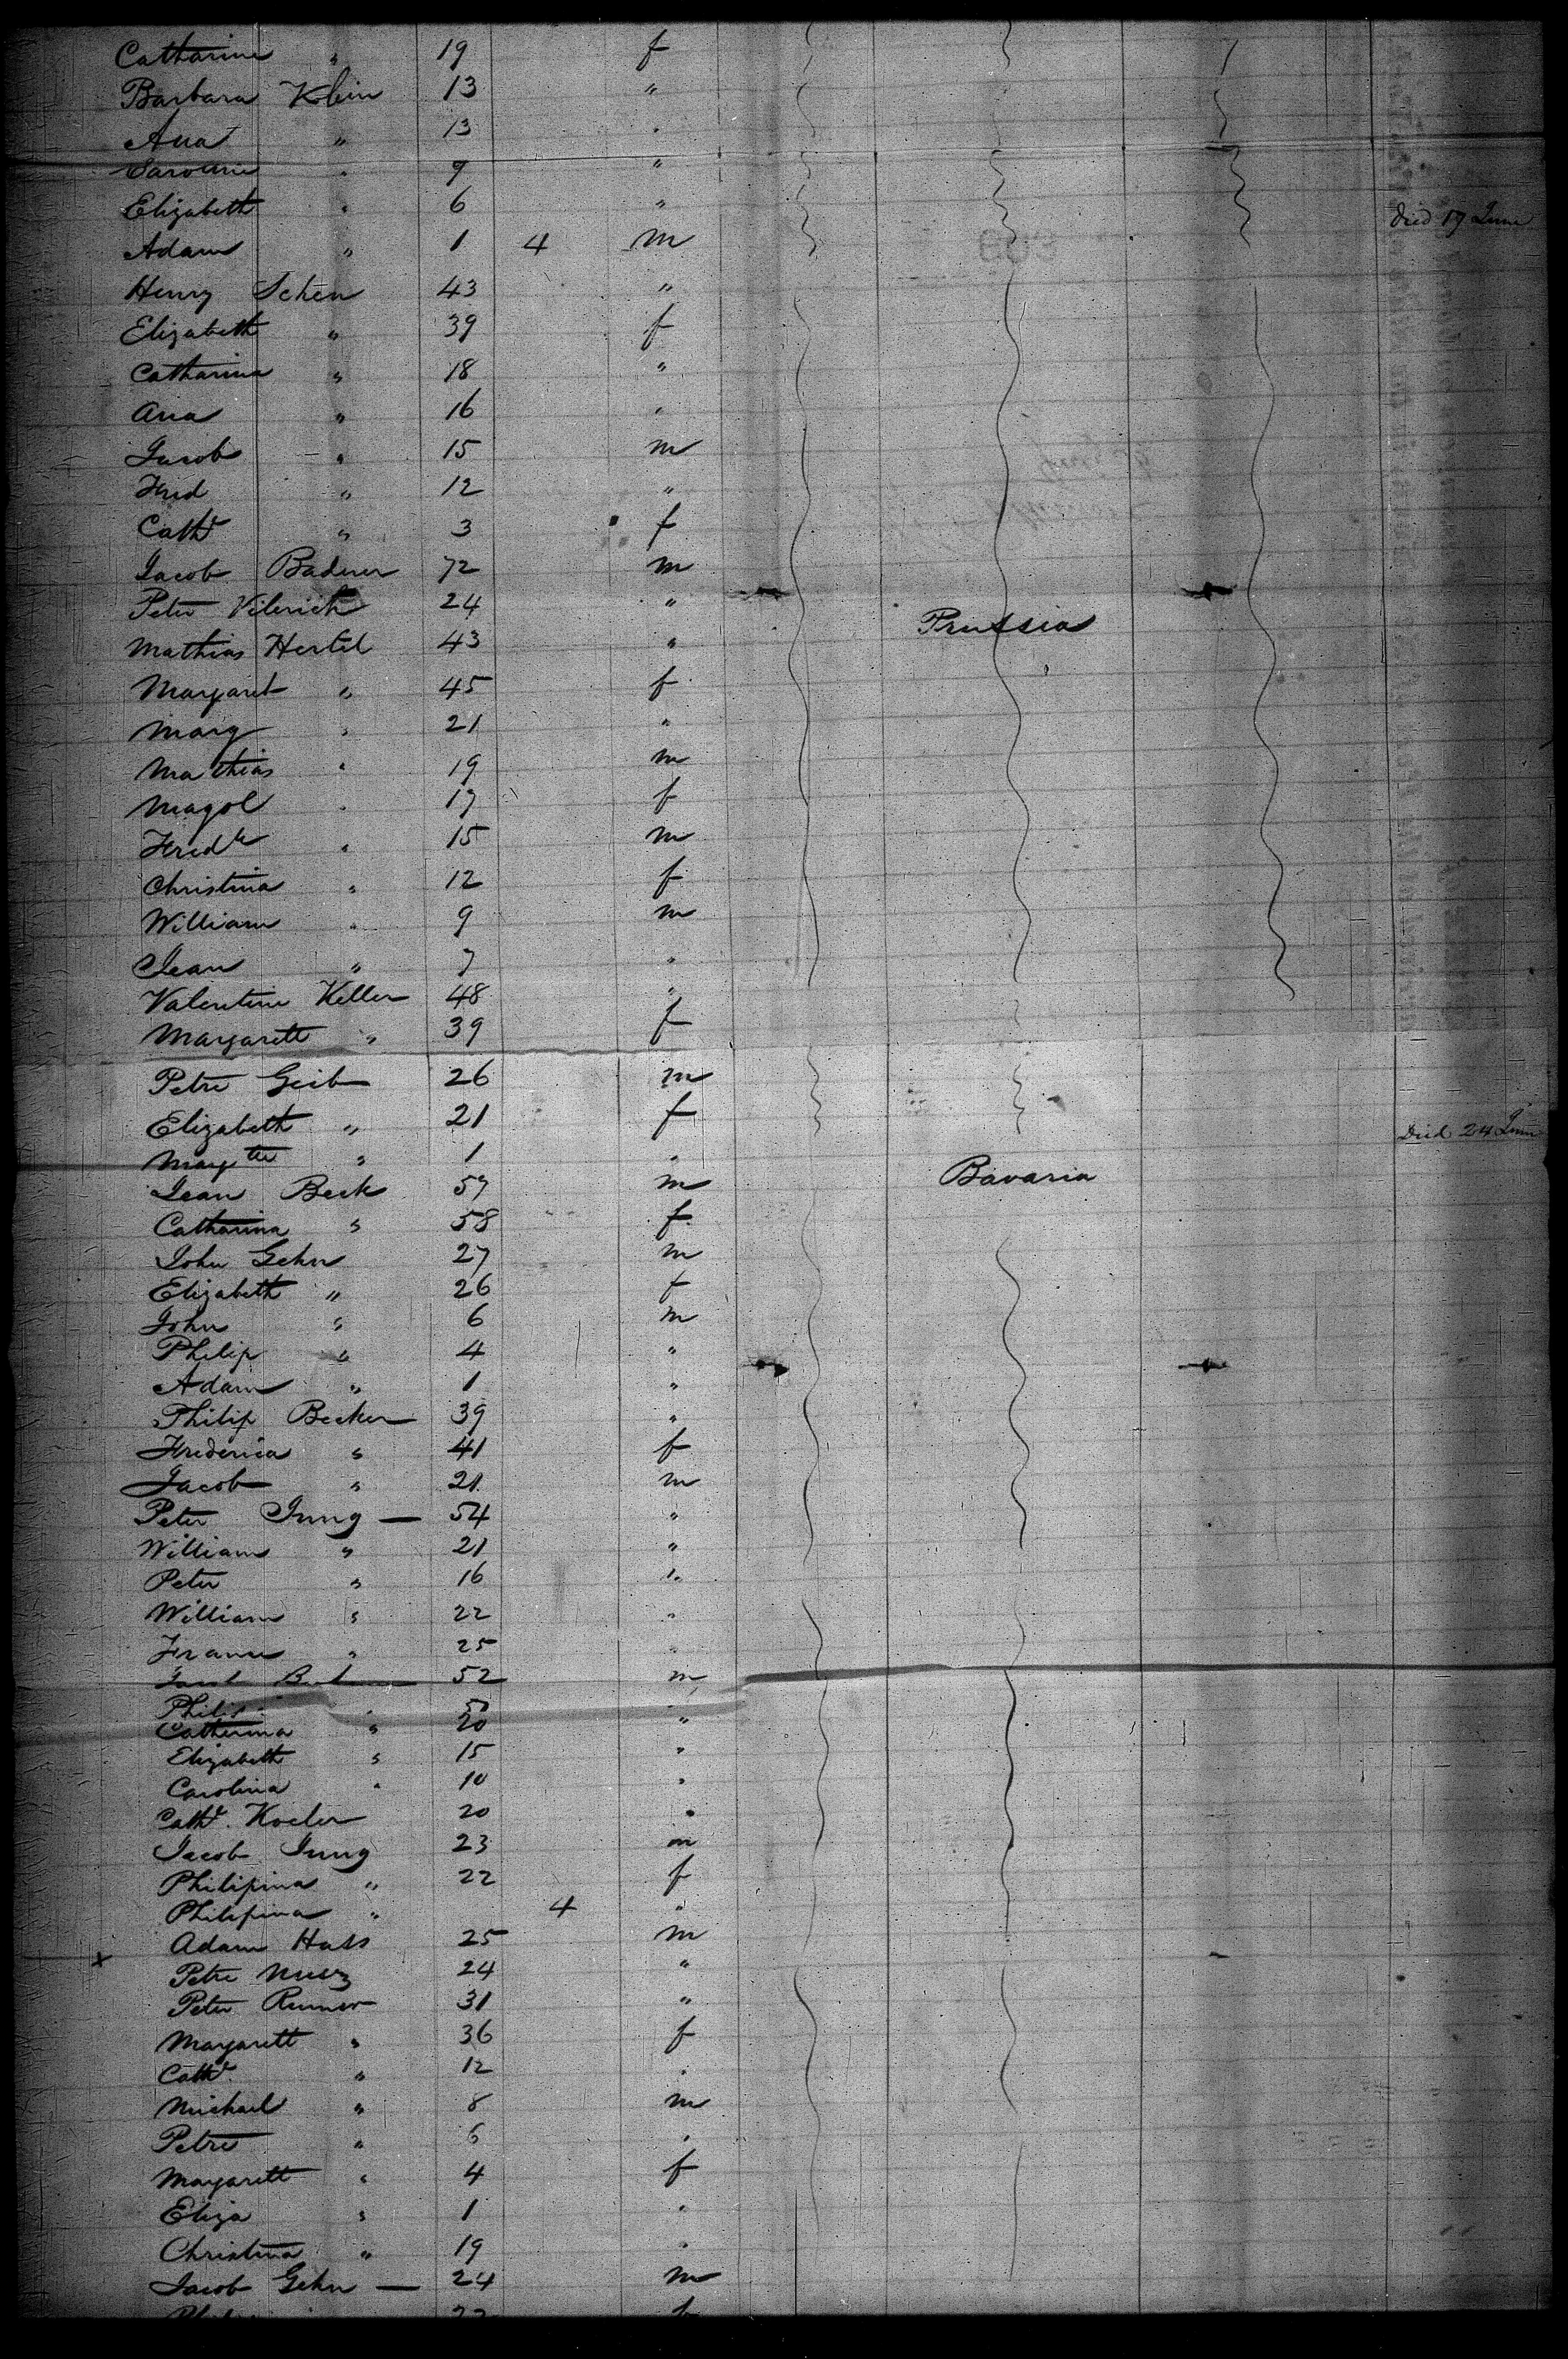 Catharine " 19 f
Barbara Klein 13 "
Ana " 13 "
Caroline " 9 "
Elizabeth " 6 " Died 17 June
Adam " 1 4 m
Henry Schen 43 "
Elizabeth " 39 f
Catharina " 18 "
Ana " 16 "
Jacob " 15 m
Fred " 12 "
Cath " 3 f
Jacob Baderer 72 m
Peter 24 " Prussia
Mathias Hertel 43 "
Margaret " 45 f
Marg " 21 "
Mathias " 19 m
Magol " 17 f
Fredk " 15 m
Christina " 12 f
William " 9 m
Jean " 7 "
Valentine Keller 48 "
Margarett " 39 f
Petre Geib 26 m
Elizabeth " 21 f Died 24 June
" 1 "
Jean Beck 57 m Bavaria
Catharina " 58 f
John Gehn 27 m
Elizabeth " 26 f
John " 6 m
Philip " 4 "
Adam " 1 "
Philip Becker 39 "
Frederica " 41 f
Jacob " 21 m
Peter Jung — 54 "
William " 21 "
Peter " 16 "
William " 22 "
" 25 "
52 m
" "
Catherina " 20 "
Elizabeth " 15 "
Carolina " 10 "
Cath. Koeler 20 "
Jacob Jung 23 m
Philipina " 22 f
Philipina " 4 "
Adam Hass 25 m
x Petre 24 "
Peter 31 "
Margarett " 36 f
Cath " 12 "
Michael " 8 m
Petre " 6 "
Margarett " 4 f
Eliza " 1 "
Christina " 19 "
Jacob Gehn — 24 m